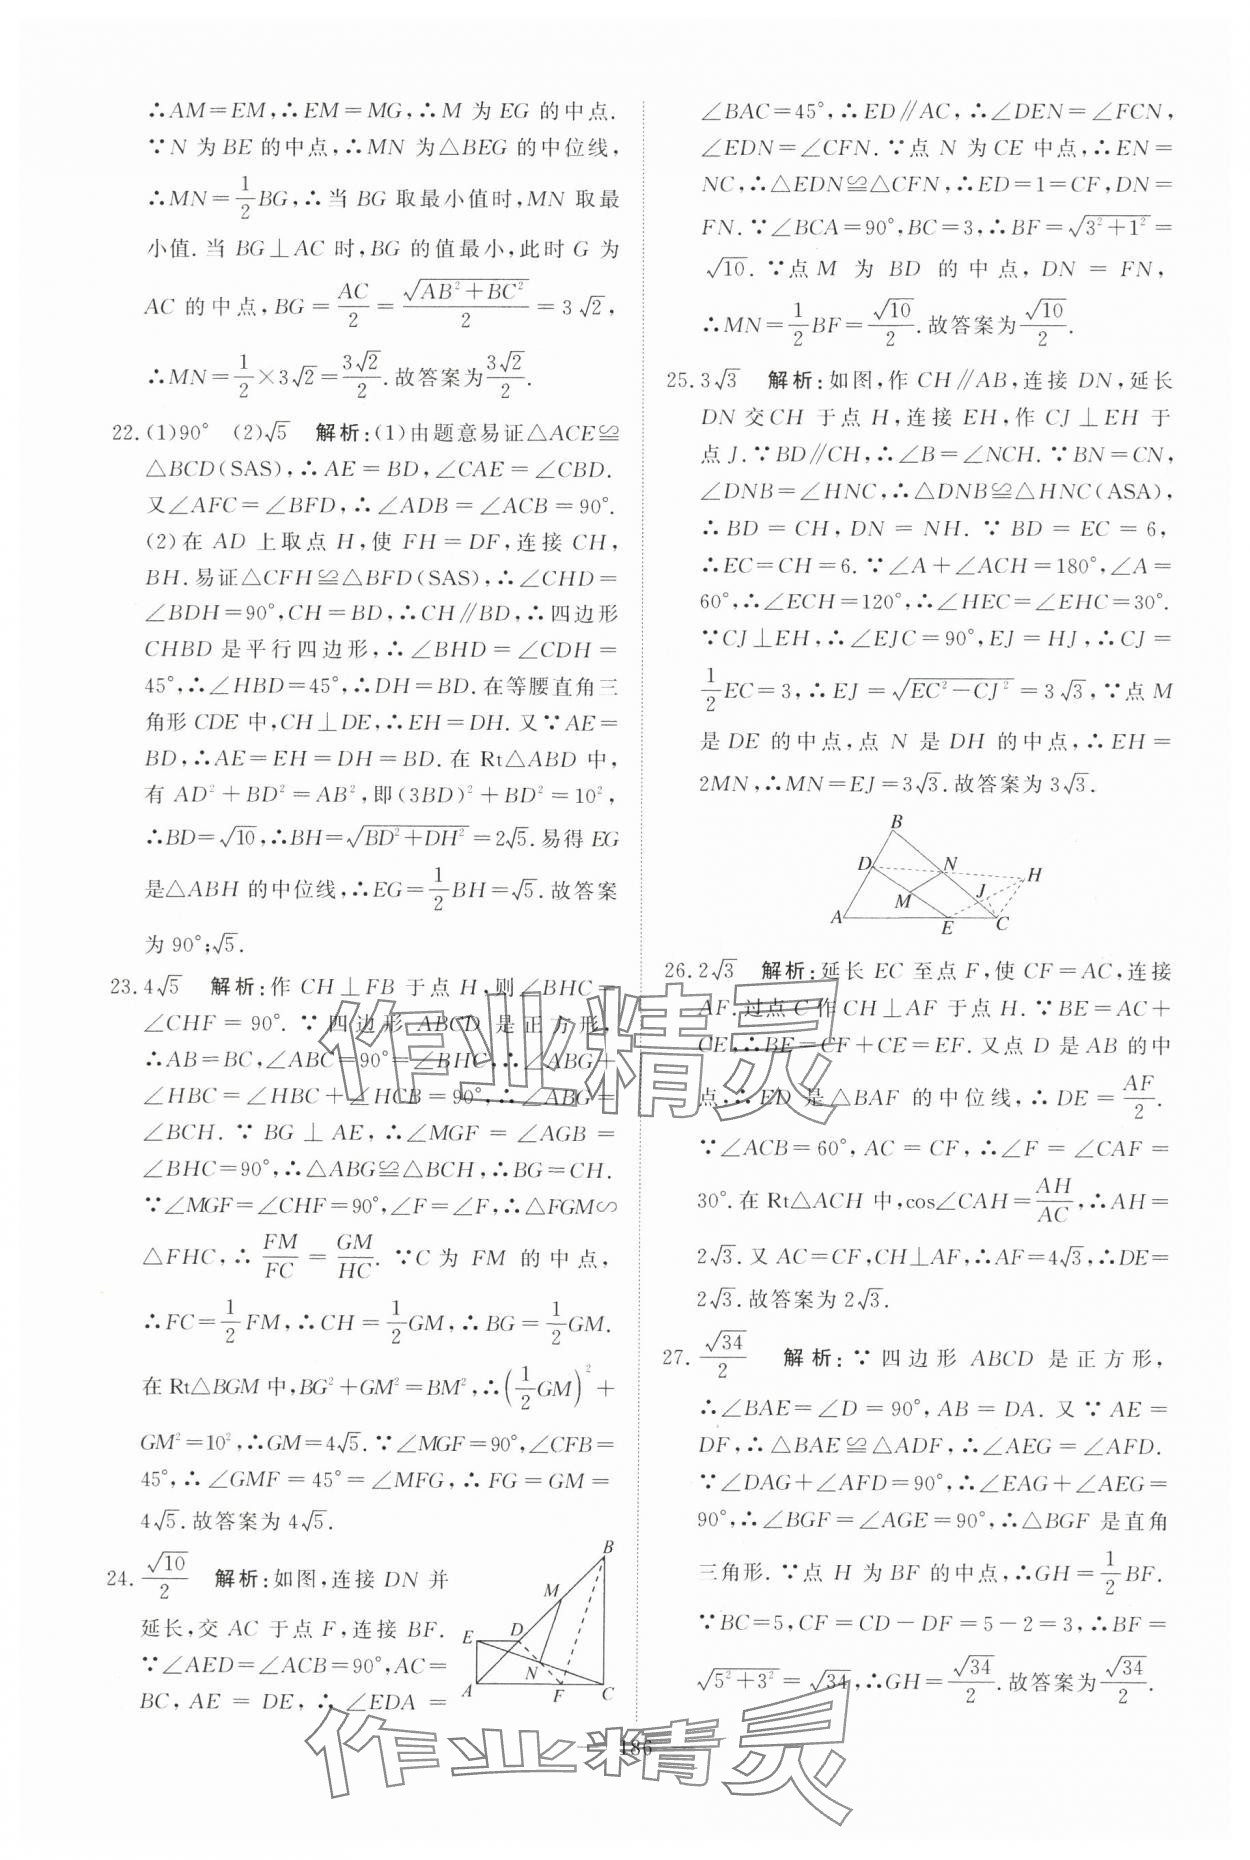 ∴AM=EM,∴EM=MG,∴M 为 EG 的中点.
∵N 为 BE 的中点,∴MN 为△BEG 的中位线,
∴MN=1/2BG,∴当 BG 取最小值时,MN 取最
小值.当 BG⊥AC 时,BG 的值最小,此时 G 为
AC 的中点,BG=AC/2=√(AB²+BC²)/2=3√2,
∴MN=1/2×3√2=3√2/2.故答案为3√2/2.
22.(1)90° (2)√5 解析:(1)由题意易证△ACE≌
△BCD(SAS),∴AE=BD,∠CAE=∠CBD.
又∠AFC=∠BFD,∴∠ADB=∠ACB=90°.
(2)在 AD 上取点 H,使 FH=DF,连接 CH,
BH.易证△CFH≌△BFD(SAS),∴∠CHD=
∠BDH=90°,CH=BD,∴CH∥BD,∴四边形
CHBD 是平行四边形,∴∠BHD=∠CDH=
45°,∴∠HBD=45°,∴DH=BD.在等腰直角三
角形 CDE 中,CH⊥DE,∴EH=DH.又∵AE=
BD,∴AE=EH=DH=BD.在 Rt△ABD 中,
有 AD²+BD²=AB²,即(3BD)²+BD²=10²,
∴BD=√10,∴BH=√(BD²+DH²)=2√5.易得 EG
是△ABH 的中位线,∴EG=1/2BH=√5.故答案
为 90°;√5.
23.4√5 解析:作 CH⊥FB 于点 H,则∠BHC=
∠CHF=90°.∵四边形 ABCD 是正方形,
∴AB=BC,∠ABC=90°=∠BHC,∴∠ABG+
∠HBC=∠HBC+∠HCB=90°,∴∠ABG=
∠BCH.∵BG⊥AE,∴∠MGF=∠AGB=
∠BHC=90°,∴△ABG≌△BCH,∴BG=CH.
∵∠MGF=∠CHF=90°,∠F=∠F,∴△FGM∽
△FHC,∴FM/FC=GM/HC.∵C 为 FM 的中点,
∴FC=1/2FM,∴CH=1/2GM,∴BG=1/2GM.
在 Rt△BGM 中,BG²+GM²=BM²,∴(1/2GM)²+
GM²=10²,∴GM=4√5.∵∠MGF=90°,∠CFB=
45°,∴∠GMF=45°=∠MFG,∴FG=GM=
4√5.故答案为 4√5.
24.√10/2 解析:如图,连接 DN 并
延长,交 AC 于点 F,连接 BF.
∵∠AED=∠ACB=90°,AC=
BC,AE=DE,∴∠EDA=
B
M
E D
N
A F C
∠BAC=45°,∴ED∥AC,∴∠DEN=∠FCN,
∠EDN=∠CFN.∵点 N 为 CE 中点,∴EN=
NC,∴△EDN≌△CFN,∴ED=1=CF,DN=
FN.∵∠BCA=90°,BC=3,∴BF=√(3²+1²)=
√10.∵点 M 为 BD 的中点,DN=FN,
∴MN=1/2BF=√10/2.故答案为√10/2.
25.3√3 解析:如图,作 CH∥AB,连接 DN,延长
DN 交CH 于点 H,连接 EH,作 CJ⊥EH 于
点 J.∵BD∥CH,∴∠B=∠NCH.∵BN=CN,
∠DNB=∠HNC,∴△DNB≌△HNC(ASA),
∴BD=CH,DN=NH.∵BD=EC=6,
∴EC=CH=6.∵∠A+∠ACH=180°,∠A=
60°,∴∠ECH=120°,∴∠HEC=∠EHC=30°.
∵CJ⊥EH,∴∠EJC=90°,EJ=HJ,∴CJ=
1/2EC=3,∴EJ=√(EC²-CJ²)=3√3,∵点 M
是 DE 的中点,点 N 是 DH 的中点,∴EH=
2MN,∴MN=EJ=3√3.故答案为 3√3.
B
D N
H
M J
A E C
26.2√3 解析:延长 EC 至点 F,使 CF=AC,连接
AF.过点 C 作 CH⊥AF 于点 H.∵BE=AC+
CE,∴BE=CF+CE=EF.又点 D 是 AB 的中
点,∴ED 是△BAF 的中位线,∴DE=AF/2.
∵∠ACB=60°,AC=CF,∴∠F=∠CAF=
30°.在 Rt△ACH 中,cos∠CAH=AH/AC,∴AH=
2√3.又 AC=CF,CH⊥AF,∴AF=4√3,∴DE=
2√3.故答案为 2√3.
27.√34/2 解析:∵四边形 ABCD 是正方形,
∴∠BAE=∠D=90°,AB=DA.又∵AE=
DF,∴△BAE≌△ADF,∴∠AEG=∠AFD.
∵∠DAG+∠AFD=90°,∴∠EAG+∠AEG=
90°,∴∠BGF=∠AGE=90°,∴△BGF 是直角
三角形.∵点 H 为 BF 的中点,∴GH=1/2BF.
∵BC=5,CF=CD-DF=5-2=3,∴BF=
√(5²+3²)=√34,∴GH=√34/2.故答案为√34/2.
186
作业精灵
作业精灵